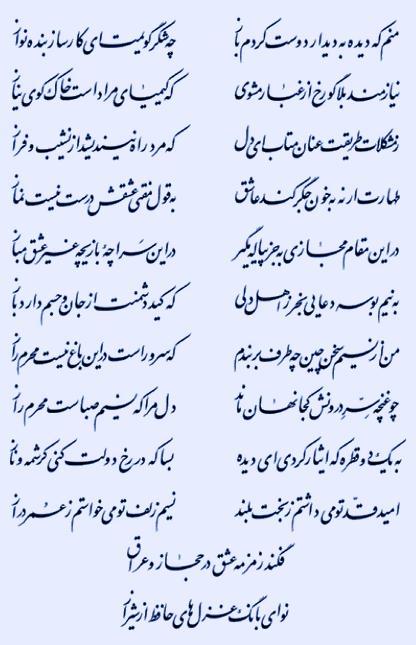 منم که دیده به دیدار دوست کردم باز چه شکر گویمت ای کارساز بنده نواز
نیازمند بلا گو رخ از غبار مشوی که کیمیای مراد است خاک کوی نیاز
ز مشکلات طریقت عنان متاب ای دل که مرد راه نیندیشد از نشیب و فراز
طهارت ار نه به خون جگر کند عاشق به قول مفتی عشقش درست نیست نماز
در این مقام مجازی به جز پیاله مگیر در این سراچهٔ بازیچه غیر عشق مباز
به نیم بوسه دعایی بخر ز اهل دلی که کید دشمنت از جان و جسم دارد باز
من از نسیم سخن چین چه طرف بربندم که سرو راست در این باغ نیست محرم راز
چو غنچه سرّ درونش کجا نهان ماند دل مرا که نسیم صباست محرم راز
به یک دو قطره که ایثار کردی ای دیده بسا که در رخ دولت کنی کرشمه و ناز
امید قدّ تو می داشتم ز بخت بلند نسیم زلف تو می خواستم ز عمر دراز
فکند زمزمه عشق در حجاز و عراق
نوای بانگ غزل های حافظ از شیراز